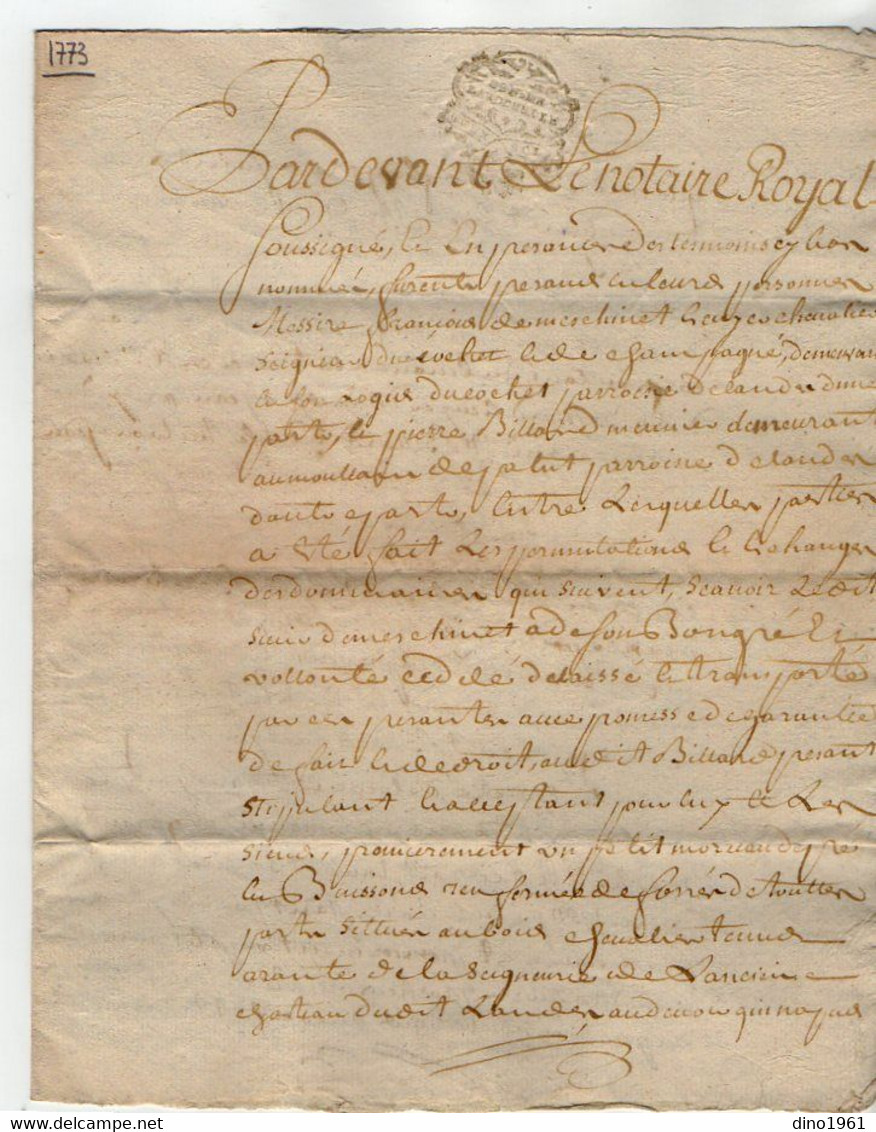 1773
Pardevant Le notaire Royal
Soussigné, Et En presance des tesmoins cy bas
nommés, furent presans en leurs personnes
Messire François de meschinet Ecuyer chevalier
Seigneur du cochet & de champagné, demeurant
en son Logis du cochet parroisse de landes dune
part, & pierre Billard meunier demeurant
au moullain de palut parroisse de landes
dautre part, Entre Lesquelles parties
a été fait Les permutations & Echanges
des dommaines qui suivent, Scavoir Ledit
sieur de meschinet a de son Bon gré Et
vollonté cedé délaissé & transporté
par ces presantes avec promesse de garantie
de fait & de droit, audit Billard presant
stipulant & acceptant pour luy & Les
siens, premierement un petit morceau de pré
en Buissons renfermée de fossés de touttes
parts sittuée au bois chevalier tenue
de la Seigneurie de Lancien
chasteau dudit Landes
dino1961